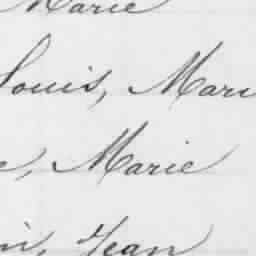 Marie
Louis, Mari
e, Marie
in, Jean